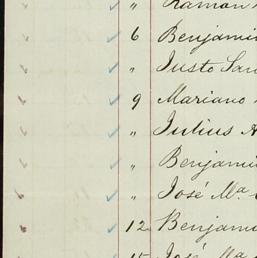 " Ramon
6 Benjamin
" Justo San
9 Mariano
" Julius A
" Benjami
" José Ma
12 Benjami
15 José Ma